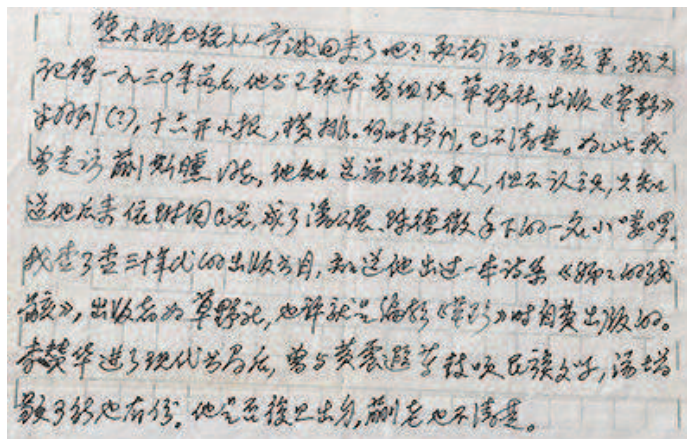 您大概已经从宁波回来了吧？承询汤增敭事，我只
记得一九三〇年前后，他与王铁华曾组织草野社，出版《草野》
半月刊(？)，十六开小报，横排。何时停刊，已不清楚。为此我
曾走访蒯斯曛同志，他知道汤增敭其人，但不认识，只知
道他后来依附国民党，成了潘公展、陈德徵手下的一名小喽啰。
我查了查三十年代的出版书目，知道他出过一本诗集《独唱的残
骸》，出版者为草野社，也许就是编辑《草野》时自费出版的。
李赞华进了现代书局后，曾与黄震遐等鼓吹民族文学，汤增
敭可能也有份。他是否复旦出身，蒯老也不清楚。